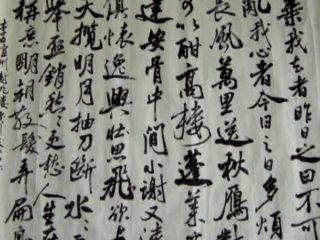 棄我去者昨日之日不可
亂我心者今日之日多煩
長風萬里送秋雁對
可以酣高樓蓬萊
建安骨中間小謝又清
俱懷逸興壯思飛欲上
天攬明月抽刀斷水〻
舉盃銷愁〻更愁人生在
稱意明朝散髮弄扁舟
李白宣州謝